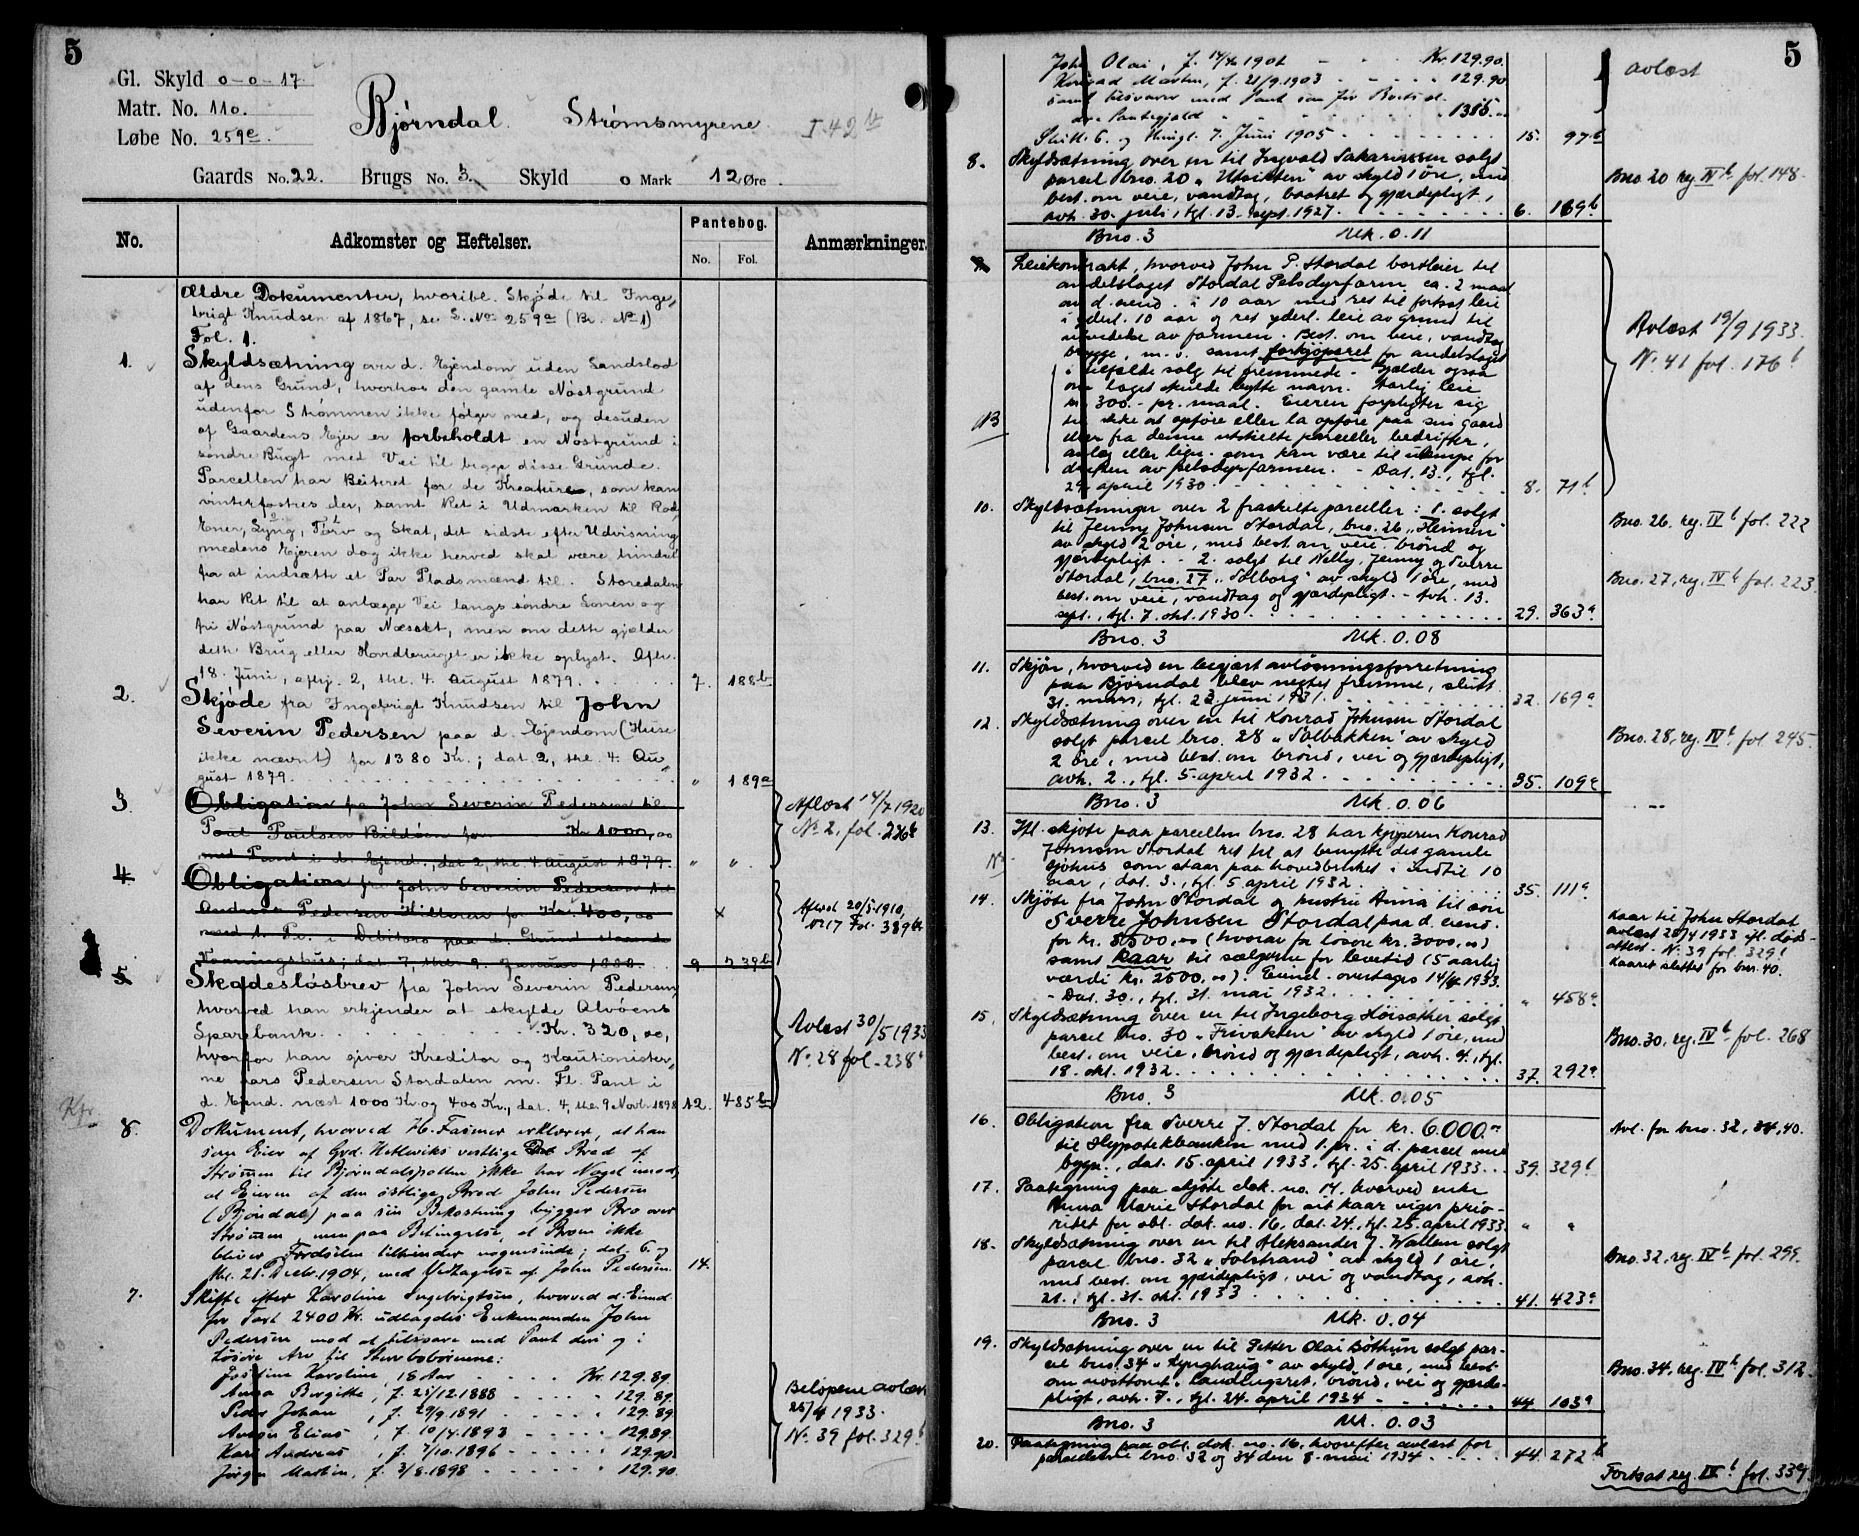 5
Gl. Skyld 0-0-17
Matr. No. 110.
Løbe No. 259e.
Bjørndal. Strømsmyrene. I 42b
Gaards No. 22. Brugs No. 3. Skyld 0 Mark 12 Øre
No.
Adkomster og Heftelser.
Pantebog.
No. Fol.
Anmærkninger.
Ældre Dokumenter, hvoribl. Skjøde til Inge-
brigt Knudsen af 1867, se L. No 259a (Br. No 1)
Fol. 1.
1. Skyldsætning over d. Ejendom uden Landslod
af dens Grund, hvorhos den gamle Nøstgrund
udenfor Strømmen ikke følger med, og desuden
af Gaardens Ejer er forbeholdt en Nøstgrund i
søndre Bugt med Vei til begge disse Grunde.
Parcellen har Beiteret for de Kreature, som kan
vinterfostres der, samt Ret i Udmarken til Rod,
Ener, Lyng, Törv og Skat, det sidste efter Udvisning
medens Ejeren dog ikke herved skal være hindret
fra at indsætte et Par Pladsmænd til. Storedalen
har Ret til at anlægge Vei langs søndre Sønen og
fri Nøstgrund paa Næsset, men om dette gjælder
dette Brug eller Hovedbruget er ikke oplyst. Afh.
18. Juni, afhj. 2, thl. 4. August 1879. 7. 188b
2. Skjøde fra Ingebrigt Knudsen til John
Severin Pedersen paa d. Ejendom (Huse
ikke nævnt) for 1380 Kr.; dat 2, thl. 4. Au-
gust 1879. " 189a
3. Obligation fra John Severin Pedersen til
Poul Poulsen Bildøen for Kr 1000,00
med Pant i d. Ejend., dat 2, thl. 4 August 1879. " "
Aflæst 14/7 1920
No 2, fol. 226b
4. Obligation fra John Severin Pedersen til
Andreas Pedersen Hilleren for Kr. 400,00
med 1. Pr. i Debitors paa d. Grund staaende
Vaaningshus; dat 7, thl. 9. Januar 1888. 9 739b
Aflæst 20/5 1910,
No 17 Fol. 389b
5. Skadesløsbrev fra John Severin Pedersen,
hvorved han erkjender at skylde Alvøens
Sparebank Kr. 320,00,
hvorfor han giver Kreditor og Kautionister-
ne Lars Pedersen Stordalen m. Fl. Pant i
d. Ejend. næst 1000 Kr og 400 Kr., dat. 4, thl. 9 Novb. 1898 12. 485b
Avlæst 30/5 1933
No. 28 fol. 238a
6. Dokument, hvorved H. Fasmer erklærer, at han
som Eier af Grd. Hetleviks vestlige Bred af
Strømmen til Bjørndalspollen ikke har Noget imod,
at Eieren af den østlige Bred John Pedersen
(Bjørndal) paa sin Bekostning bygger Bro over
Strømmen, men paa Betingelse, at Broen ikke
bliver Færdselen tilhinder nogensinde; dat. 6. og
thl. 21. Decbr. 1904, med Vedtagelse af John Pedersen. 14.
7. Skifte efter Karoline Ingebrigtsen, hvorved d. Eiend.
for Taxt 2400 Kr. udlagdes Enkemanden John
Pedersen mod at tilsvare med Pant deri og i
Løsøre Arv til Stervbobørnene:
Josefine Karoline, 18 Aar Kr. 129.89.
Anna Birgitte, f. 25/12.1888 129.89.
Peder Johan, f. 29/9.1891 129.89
Anton Elias, f. 10/4.1893 129.89.
Karl Andreas, f. 7/10.1896 129.90.
Jørgen Martin, f. 3/8.1898 129.90
Beløpene avlæst
25/4 1933.
No. 39 fol. 329b
5
John Olai, f. 14/4 1901 Kr. 129.90.
Konrad Marten, f. 21/9.1903 129.90
samt tilsvarer med Pant
1385.
avlæst
Slutt. 6. og thingl. 7. Juni 1905 15. 97b
8. Skyldsætning over en til Ingvald Sakariassen solgt
parcel bno. 20 "Utsikten" av skyld 1 øre, med
best. om veie, vandtag, baatret og gjerdepligt,
avh. 30. juli, tgl. 13. sept. 1927. 6. 169b
Bno. 20 reg. IVb fol. 148.
Bno. 3 Mk. 0.11
9. Leiekontrakt, hvorved John P. Stordal bortleier til
andelslaget Stordal Pelsdyrfarm ca. 2 maal
av d. eiend. i 10 aar med ret til fortsat leie
i yderl. 10 aar og ret yderl. leie av grund til
utvidelse av farmen. Best. om veie, vandtag
brygge, m. v. samt forkjøpsret for andelslaget
i tilfælde solg til fremmede. - Gjælder ogsaa
om laget skulde bytte navn. Aarlig leie
kr. 300.- pr. maal. Eieren forpligter sig
til ikke at opføre eller la opføre paa sin gaard
eller fra denne utskilte parceller bedrifter,
anlæg eller lign. som kan være til ulempe for
driften av pelsdyrfarmen. - Dat. 13., tgl.
29. april 1930 8. 71b
Avlæst 19/9 1933.
No. 41 fol. 176b
10. Skyldsætninger over 2 fraskilte parceller: 1. solgt
til Jenny Johnsen Stordal, bno. 26 "Heimen"
av skyld 2 øre, med best. om veie, brønd og
gjærdepligt. - 2. solgt til Nelly, Jenny og Sverre
Stordal, bno. 27 "Solborg" av skyld 1 øre, med
best. om veie, vandtag og gjærdepligt. - Avh. 13.
sept., tgl. 7. okt. 1930. 29. 363a
Bno. 26. reg. IVb fol. 222
Bno. 27, reg. IVb fol. 223.
Bno. 3 Mk. 0.08
11. Skjøn, hvorved en begjært avløsningsforretning
paa Bjørndal blev negtet fremme, slutt
31. mars, tgl. 23 juni 1931. 32. 169a
12. Skyldsætning over en til Konrad Johnsen Stordal
solgt parcel bno. 28 "Solbakken" av skyld
2 øre, med best. om brønd, vei og gjærdepligt,
avh. 2., tgl. 5. april 1932 35. 109a
Bno. 28, reg. IVb fol. 245.
Bno. 3 Mk. 0.06
13. Ifl. skjøte paa parcellen bno. 28 har kjøperen Konrad
Johnsen Stordal ret til at benytte det gamle
sjøhus som staar paa hovedbruket, indtil 10
aar, dat. 3., tgl. 5 april 1932. 35. 111a
14. Skjøte fra John Stordal og hustru Anna til søn
Sverre Johnsen Stordal paa d. eiend.
for kr. 8500,00 (hvorav for løsøre kr. 3000,00)
samt kaar til sælgerne for levetid (5 aarlig
værdi kr. 2500,00). Eiend. overtages 14/4 1933.
- Dat. 30., tgl. 31. mai 1932. " 458a
Kaar til John Stordal
avlæst 25/4 1933 ifl. døds-
attest. No. 39 fol. 329b
Kaaret slettet for bno. 40.
15. Skyldsætning over en til Ingeborg Höisæther solgt
parcel bno. 30 "Frivakten" av skyld 1 öre, med
best. om veie, brönd og gjærdepligt, avh. 4., tgl.
18. okt. 1932. 37. 292a
Bno. 30. reg. IVb fol. 268
Bno. 3 Mk. 0.05
16. Obligation fra Sverre J. Stordal for kr. 6.000.-
til Hypotekbanken med 1. pr. i d. parcel med
bygn., dat. 15. april 1933, tgl. 25. april 1933 39. 329b
Avl. for bno. 32, 34, 40.
17. Paategning paa skjøte dok. no. 14. hvorved enke
Anna Marie Stordal for sit kaar viger prio-
ritet for obl. dok. no. 16, dat. 24., tgl. 25. april 1933. " "
18. Skyldsætning over en til Aleksander J. Wallem solgt
parcel bno. 32 "Solstrand" av skyld 1 øre,
med best. om gjærdepligt, vei og vandtag, avh.
21., tgl. 31. okt. 1933 41. 423a
Bno. 32, reg. IVb fol. 299.
Bno. 3 Mk. 0.04
19. Skyldsætning over en til Petter Olai Bøthun solgt par-
cel bno. 34 "Lynghaug" av skyld 1 øre, med best.
om nøsttomt, landingsret, brønd, vei og gjærde-
pligt, avh. 7., tgl. 24. april 1934 44. 103a
Bno. 34, reg. IVb fol. 312.
Bno. 3 Mk. 0.03
20. Paategning paa obl. dok. no. 16, hvorefter avlæst for
parcellene bno. 32 og 34 den 8. mai 1934 44. 272b
Fortsat reg. IVb fol. 339.